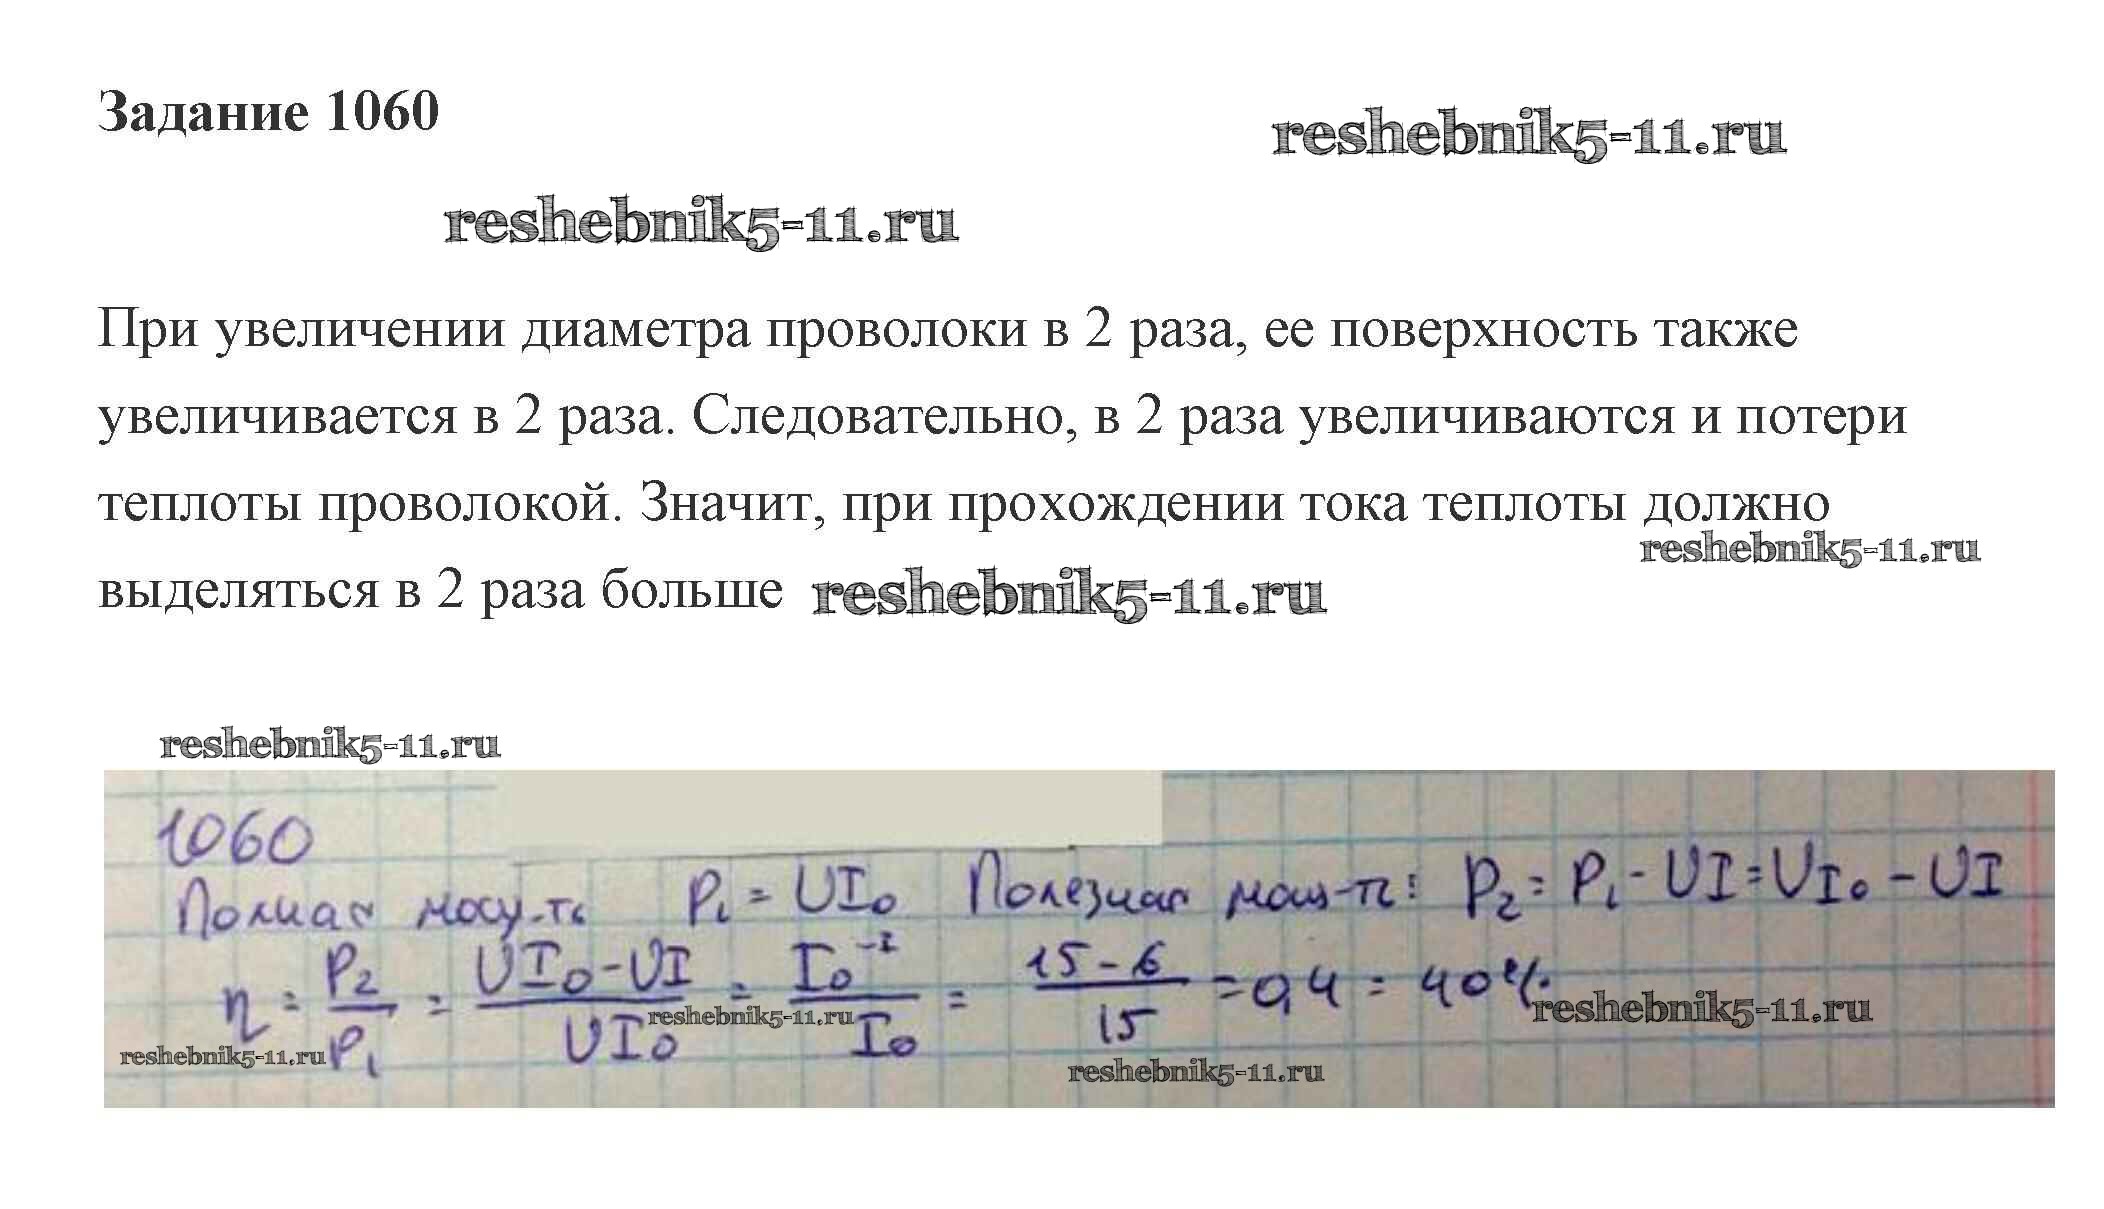 Задание 1060
reshebnik5-11.ru
reshebnik5-11.ru
При увеличении диаметра проволоки в 2 раза, ее поверхность также
увеличивается в 2 раза. Следовательно, в 2 раза увеличиваются и потери
теплоты проволокой. Значит, при прохождении тока теплоты должно
reshebnik5-11.ru
выделяться в 2 раза больше reshebnik5-11.ru
reshebnik5-11.ru
1060
Полная мощ-ть P₁ = UI₀ Полезная мощ-ть: P₂ = P₁ - UI = UI₀ - UI
η = P₂/P₁ = (UI₀ - UI)/UI₀ = (I₀ - I)/I₀ = (15 - 6)/15 = 0,4 = 40%
reshebnik5-11.ru
reshebnik5-11.ru
reshebnik5-11.ru
reshebnik5-11.ru